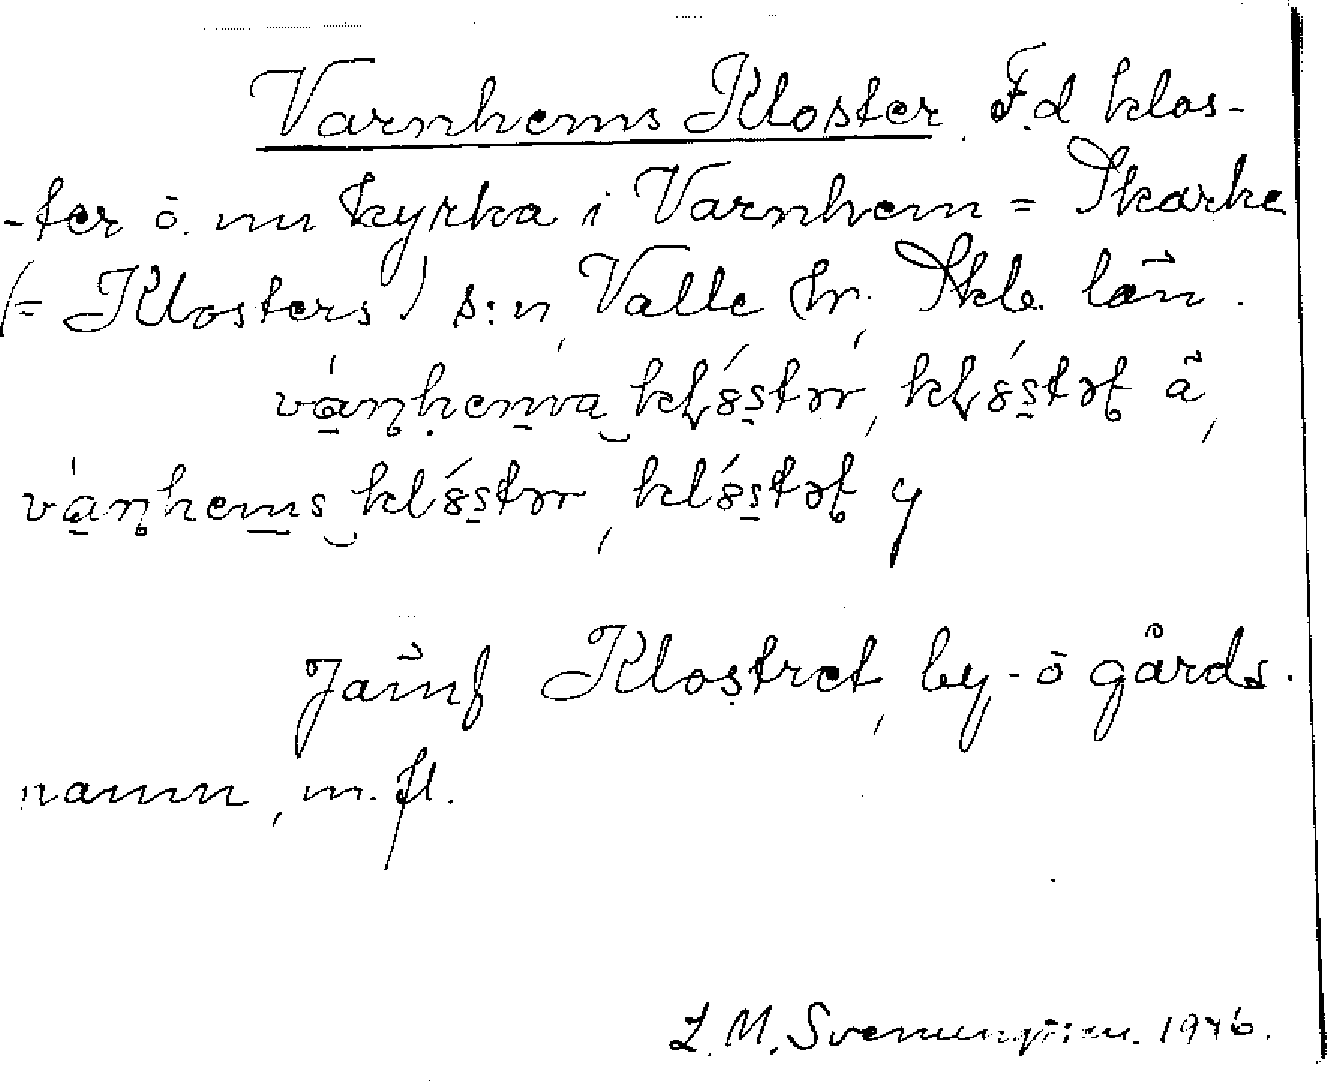 Varnhems Kloster. F.d klos-
-ter o. nu kyrka i Varnhem = Skarke
(= Klosters) s:n, Valle hr, Skb. län.
klǫ́stər, klǫ́stət ä,
klǫ́stər, klǫ́stət y
Jämf Klostret, by- o gårds-
namn, m. fl.
L. M. Svenungsson. 1946.